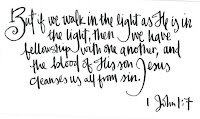 But if we walk in the light as He is in
the light, then we have
fellowship with one another, and
the blood of His son Jesus
cleanses us all from sin.
1 John 1:7